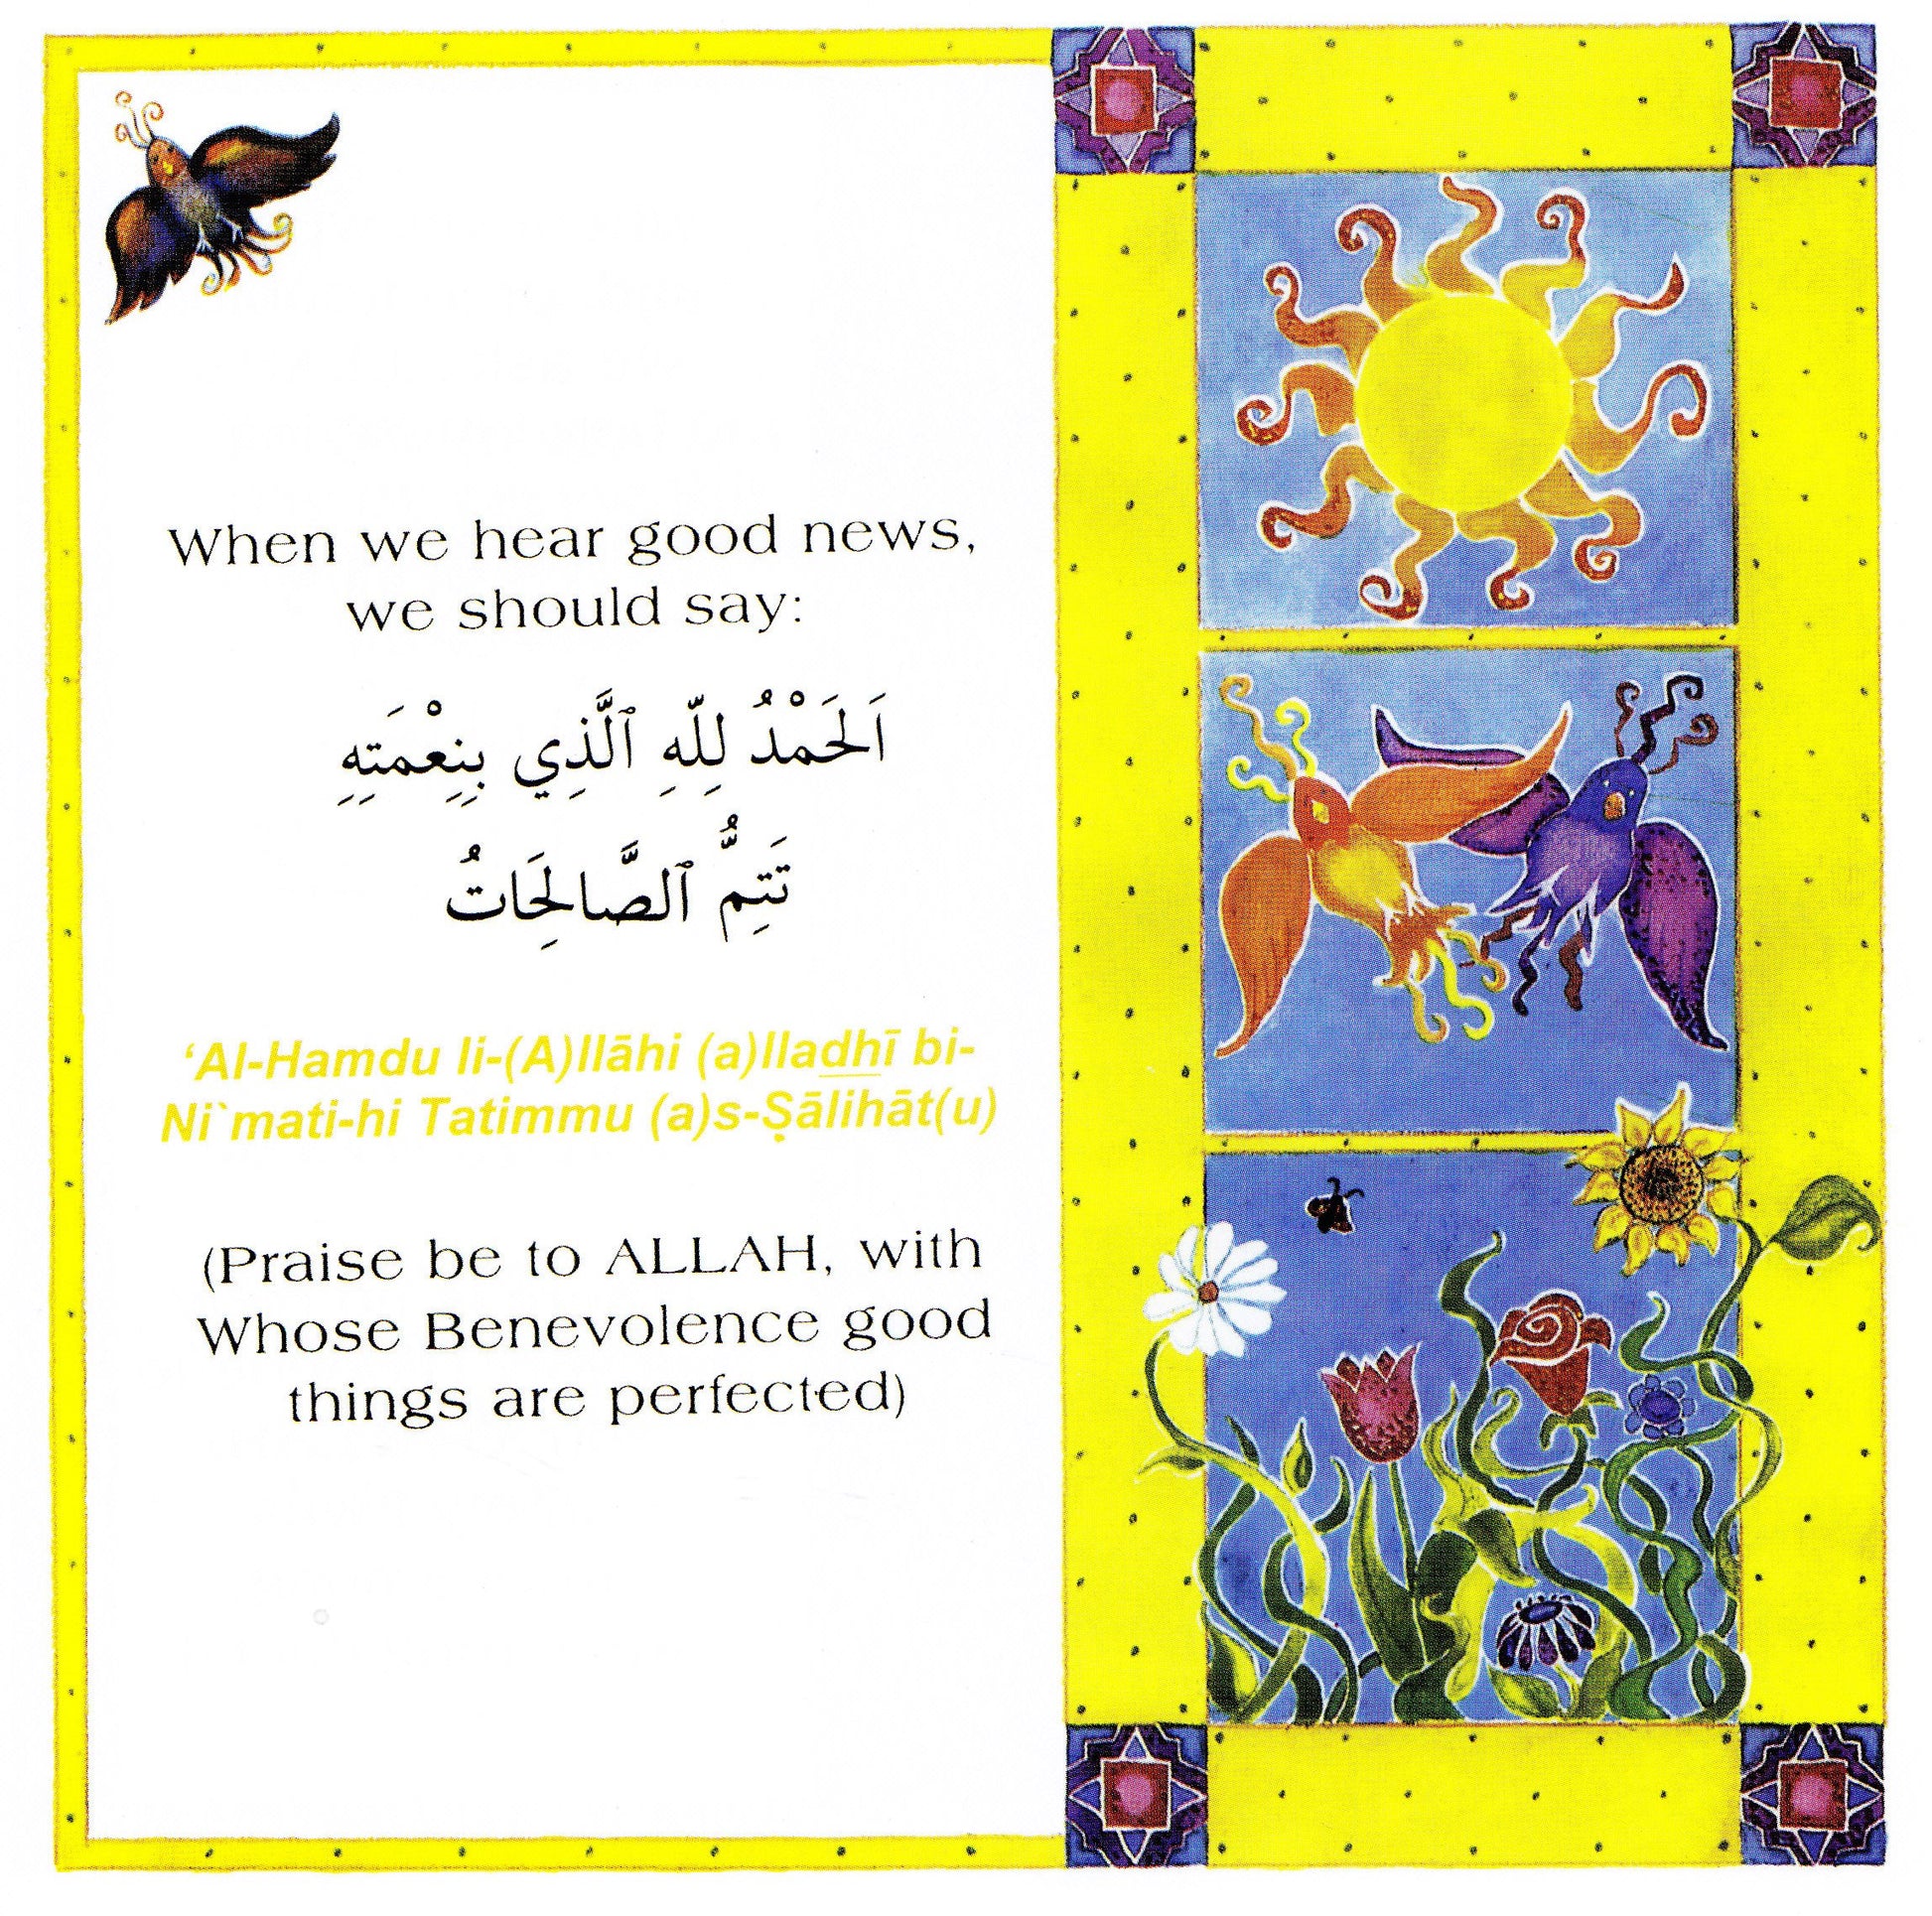 When we hear good news,
we should say:
اَلحَمْدُ لِلّهِ ٱلَّذِي بِنِعْمَتِهِ
تَتِمُّ ٱلصَّالِحَاتُ
‘Al-Hamdu li-(A)llāhi (a)lladhī bi-
Ni`mati-hi Tatimmu (a)s-Ṣālihāt(u)
(Praise be to ALLAH, with
Whose Benevolence good
things are perfected)